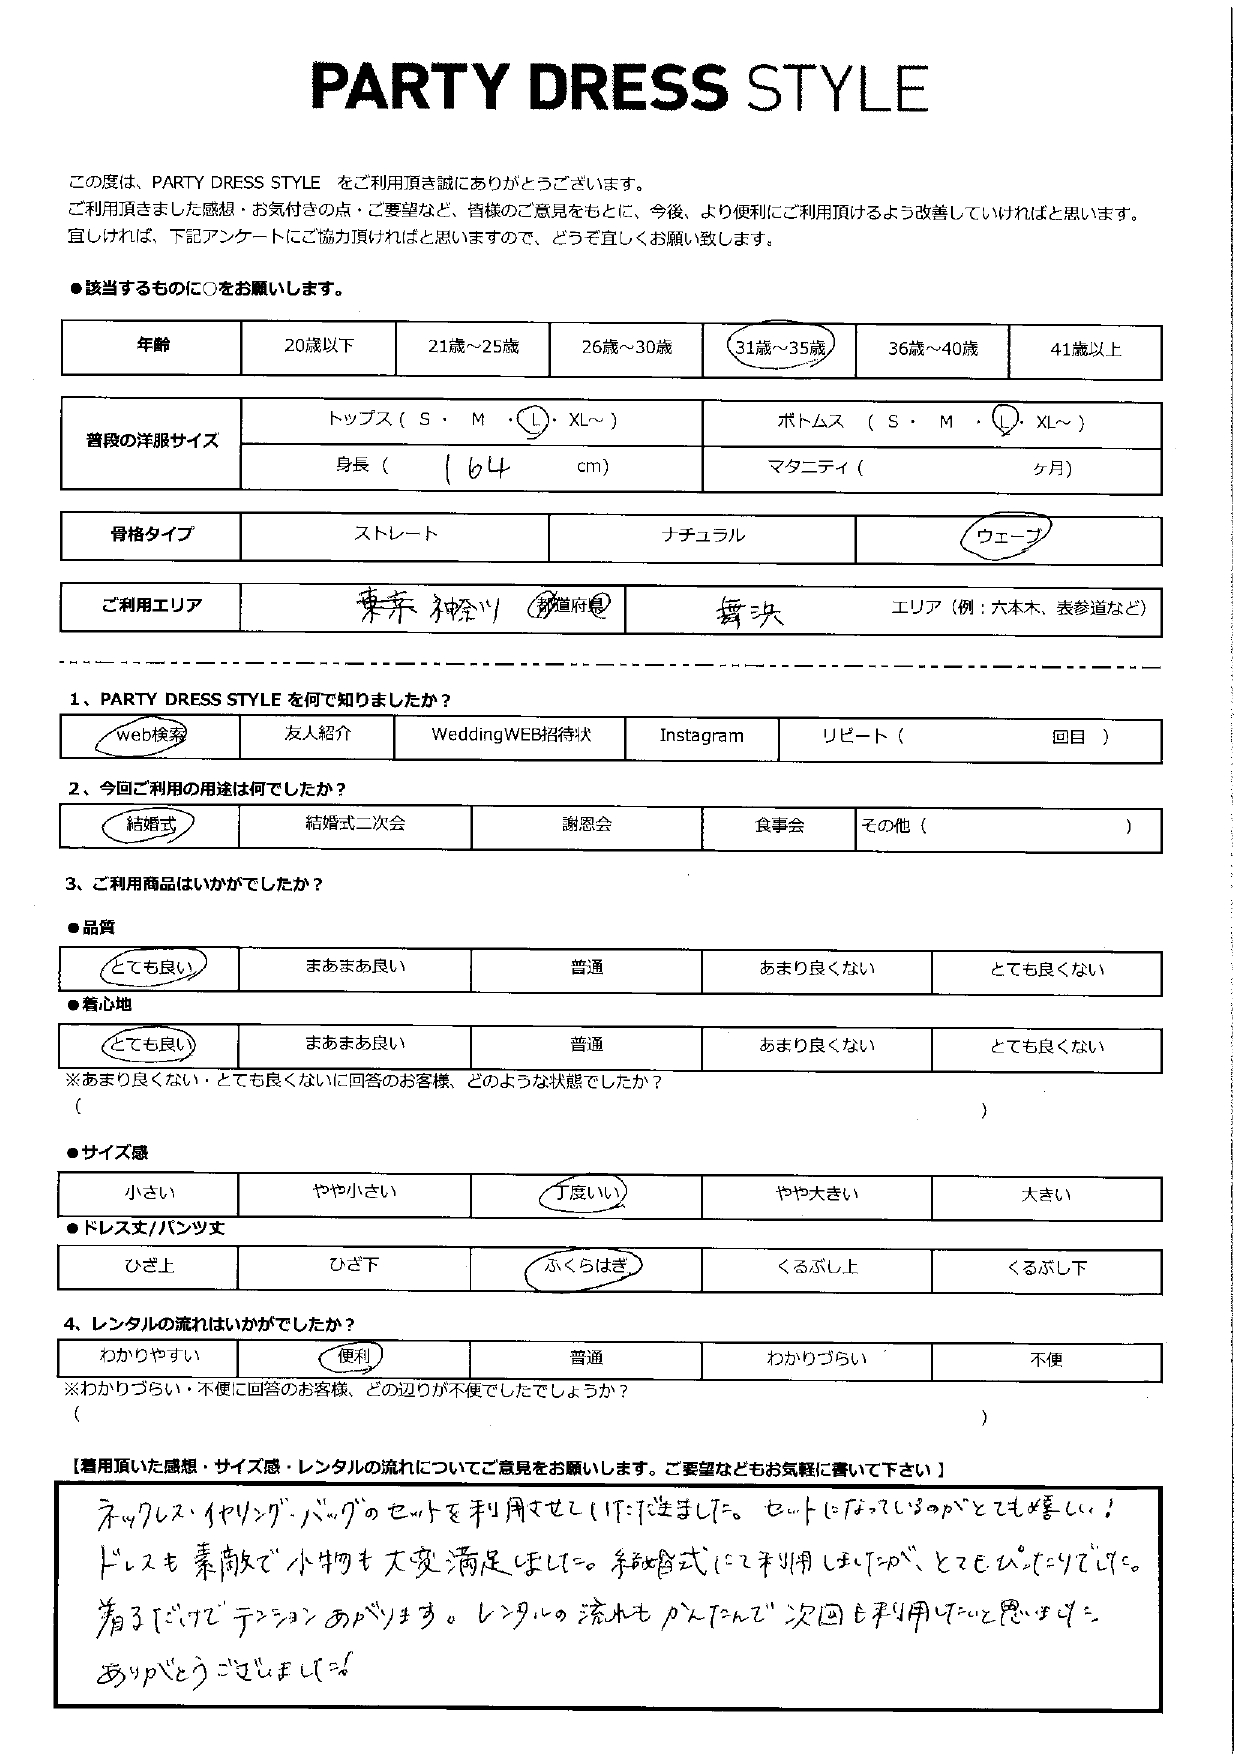 PARTY DRESS STYLE
この度は、PARTY DRESS STYLE をご利用頂き誠にありがとうございます。
ご利用頂きました感想・お気付きの点・ご要望など、皆様のご意見をもとに、今後、より便利にご利用頂けるよう改善していければと思います。
宜しければ、下記アンケートにご協力頂ければと思いますので、どうぞ宜しくお願い致します。
●該当するものに○をお願いします。
年齢 20歳以下 21歳～25歳 26歳～30歳 31歳～35歳 36歳～40歳 41歳以上
普段の洋服サイズ トップス ( S ・ M ・ L ・ XL～ ) ボトムス ( S ・ M ・ L ・ XL～ )
身長 ( 164 cm) マタニティ ( ヶ月)
骨格タイプ ストレート ナチュラル ウェーブ
ご利用エリア 東京 神奈川 都道府県 舞浜 エリア（例：六本木、表参道など）
1、PARTY DRESS STYLE を何で知りましたか？
web検索 友人紹介 WeddingWEB招待状 Instagram リピート ( 回目 )
2、今回ご利用の用途は何でしたか？
結婚式 結婚式二次会 謝恩会 食事会 その他 ( )
3、ご利用商品はいかがでしたか？
●品質
とても良い まあまあ良い 普通 あまり良くない とても良くない
●着心地
とても良い まあまあ良い 普通 あまり良くない とても良くない
※あまり良くない・とても良くないに回答のお客様、どのような状態でしたか？
( )
●サイズ感
小さい やや小さい 丁度いい やや大きい 大きい
●ドレス丈/パンツ丈
ひざ上 ひざ下 ふくらはぎ くるぶし上 くるぶし下
4、レンタルの流れはいかがでしたか？
わかりやすい 便利 普通 わかりづらい 不便
※わかりづらい・不便に回答のお客様、どの辺りが不便でしたでしょうか？
( )
【着用頂いた感想・サイズ感・レンタルの流れについてご意見をお願いします。ご要望などもお気軽に書いて下さい 】
ネックレス・イヤリング・バッグのセットを利用させていただきました。セットになっているのがとても嬉しい!
ドレスも素敵で小物も大変満足しました。結婚式にて利用しましたが、とてもぴったりでした。
着るだけでテンションあがります。レンタルの流れもかんたんで次回も利用したいと思いました
ありがとうございました!